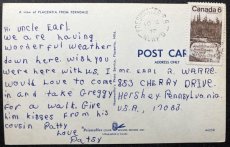 A view of PLACENTIA FROM FERNDALE
Hi uncle Earl.
We are having
wonderful weather
down here. wish you
were here with
us. I would love to come
in and take Greggy
for a walk. Give
him kisses from his
cousin Patty
Love
Patsy
POST CARD
ADDRESS ONLY
Canada 6
MR. EARL R. WARRE
853 CHERRY DRIVE
Hershey Pennsylvania
U.S.A. 17033.